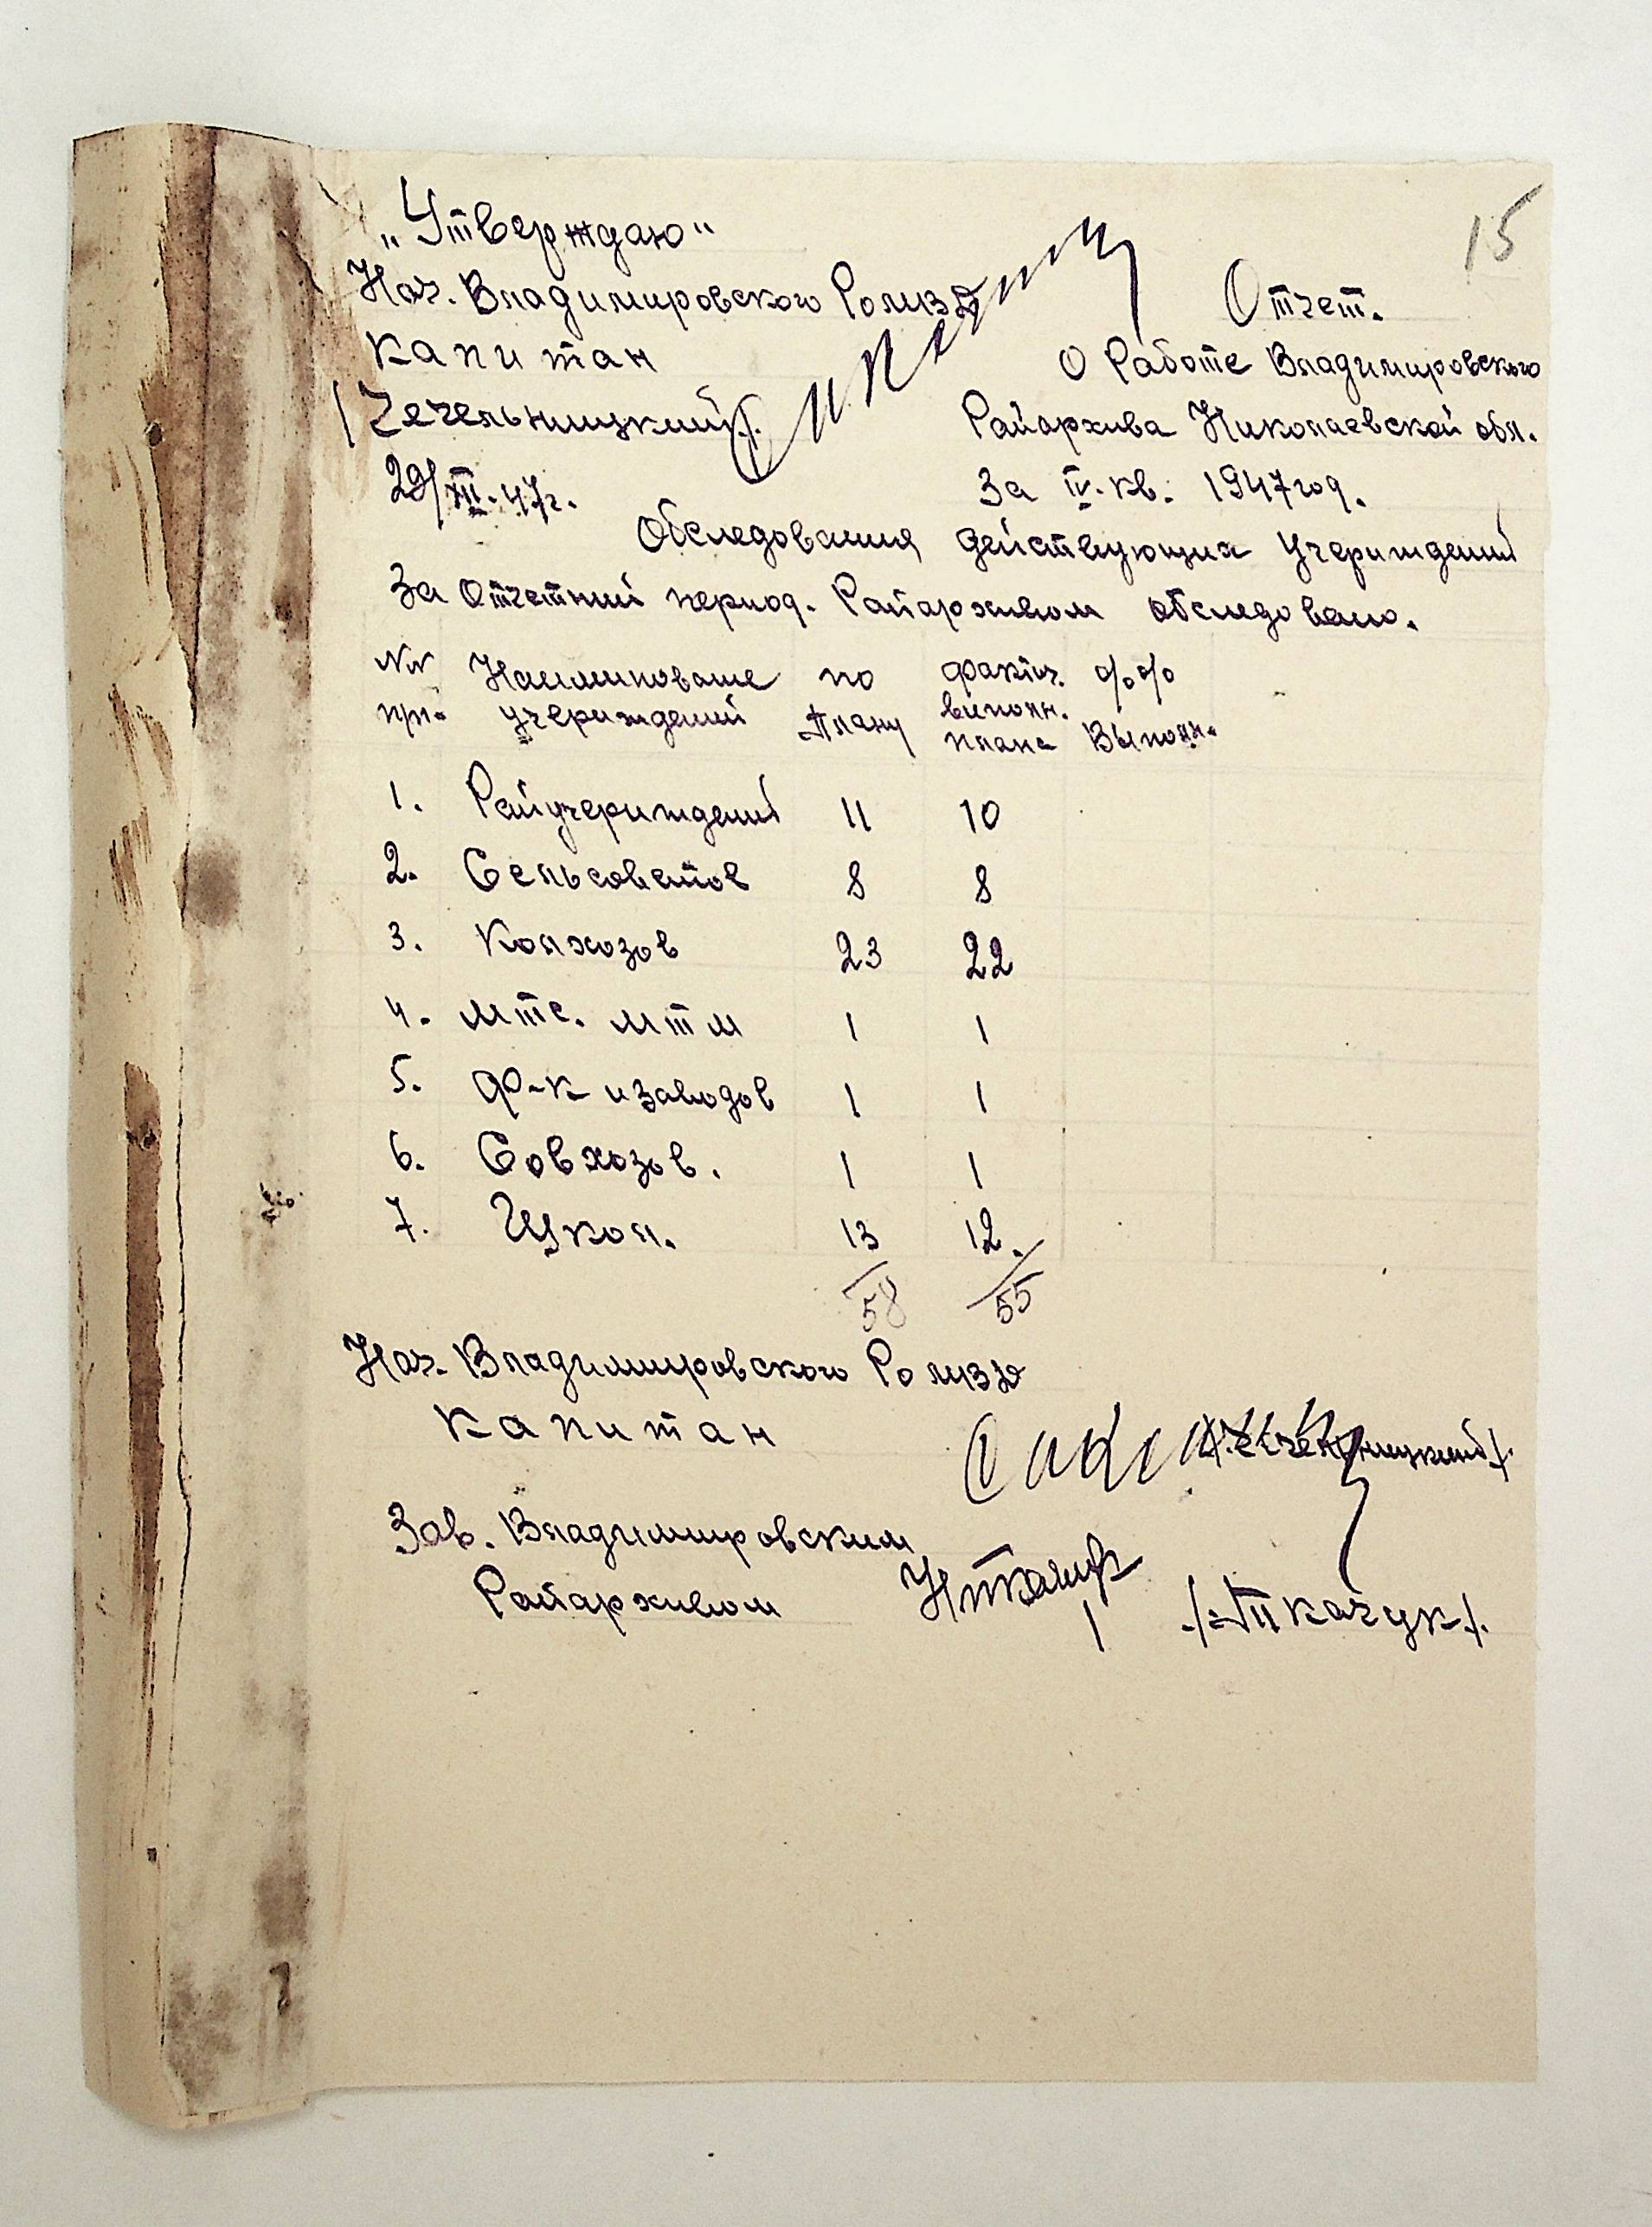 15
„Утверждаю"
Нач. Владимировского РОМВД
Капитан
/Чечельницкий/.
29/XII-47г.
Отчет.
О Работе Владимировского
Райархива Николаевской обл.
За IV-кв. 1947 год.
Обследования действующих Учериждений
За Отчетний период. Райархивом обследовано.
№№ Наиминование по фактич. %%
пп. учериждений плану виполн. Выполн.
плана
1. Райучериждений 11 10
2. Сельсоветов 8 8
3. Колхозов 23 22
4. мтс. мтм 1 1
5. Ф-к и заводов 1 1
6. Совхозов. 1 1
7. Школ. 13 12.
58 55
Нач. Владимировского РОМВД
Капитан /Чечельницкий/.
Зав. Владимировским
Райархивом НТкачук /Ткачук/.